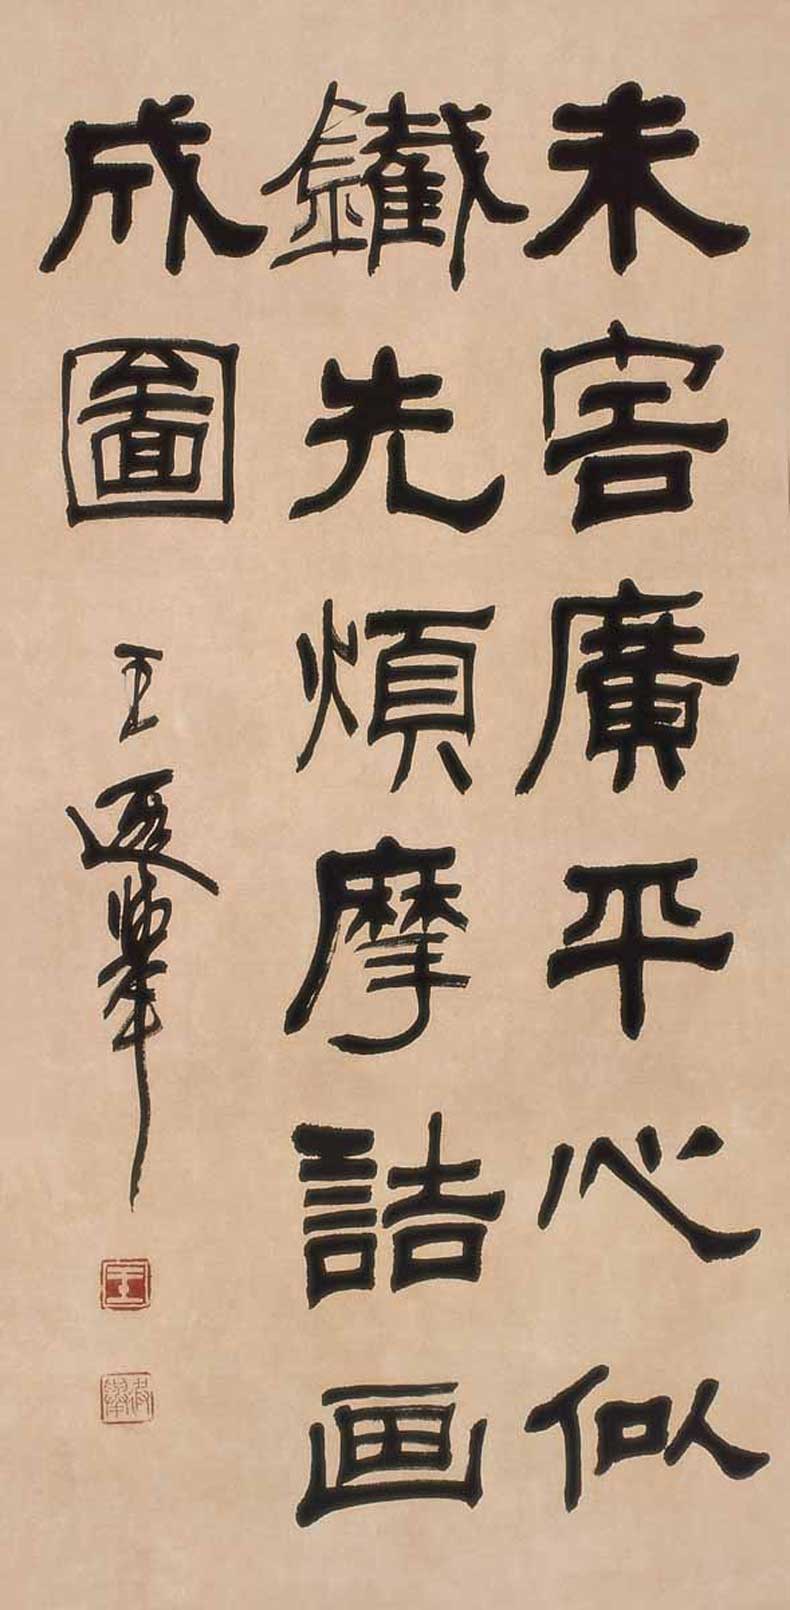 未害廣平心似
鐵先煩摩詰画
成圖
王遐舉
王